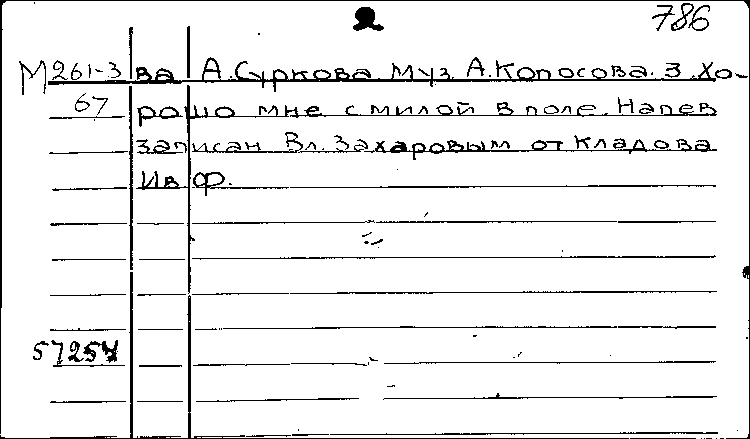 2
786
М261-3 ва А.Суркова Муз. А.Копосова. 3.Хо-
67 рошо мне с милой в поле. Напев
записан Вл. Захаровым от Кладова
Ив Ф.
57257